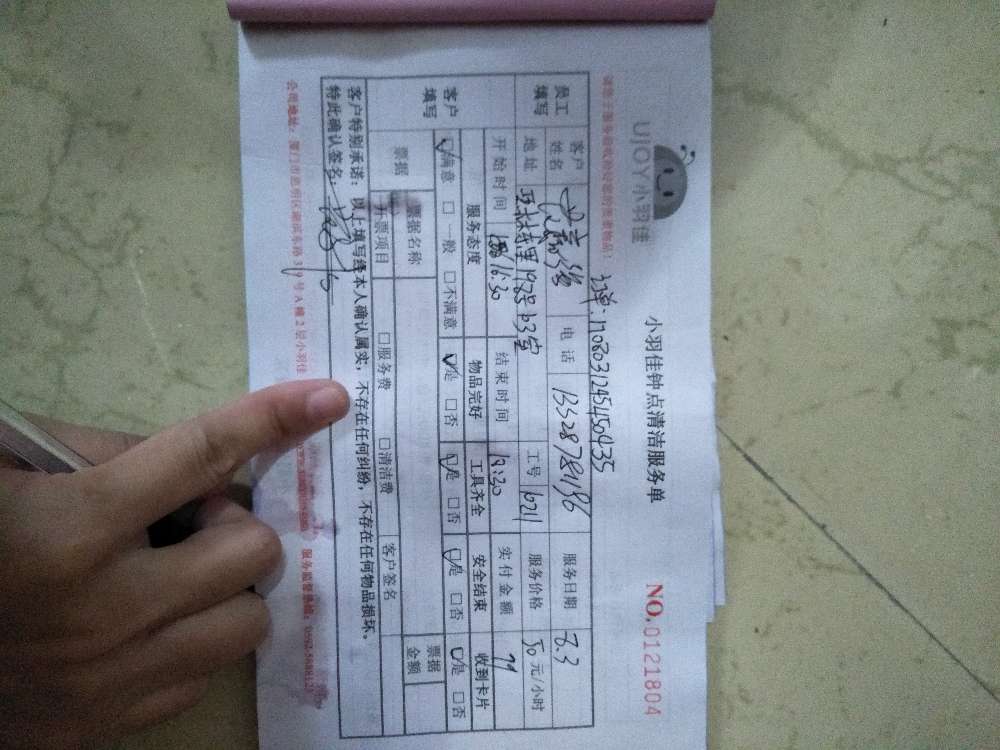 UJOY小羽佳
小羽佳钟点清洁服务单
NO.0121804
订单:1708031245450435
员工填写
客户姓名
电话 13328789196
服务日期 8.3
地址
197号b3室
工号 b211
服务价格 50元/小时
开始时间 16:30
结束时间 18:30
实付金额 99
客户填写
服务态度 物品完好 工具齐全 安全结束 收到卡片
☑满意 □一般 □不满意 ☑是 □否 ☑是 □否 ☑是 □否 ☑是 □否
票据
票据名称
票据金额
开票项目 □服务费 □清洁费 客户签名
客户特别承诺:以上填写经本人确认属实,不存在任何纠纷,不存在任何物品损坏。
特此确认签名:
公司地址:厦门市思明区湖滨东路319号A幢2层小羽佳
服务监督热线: